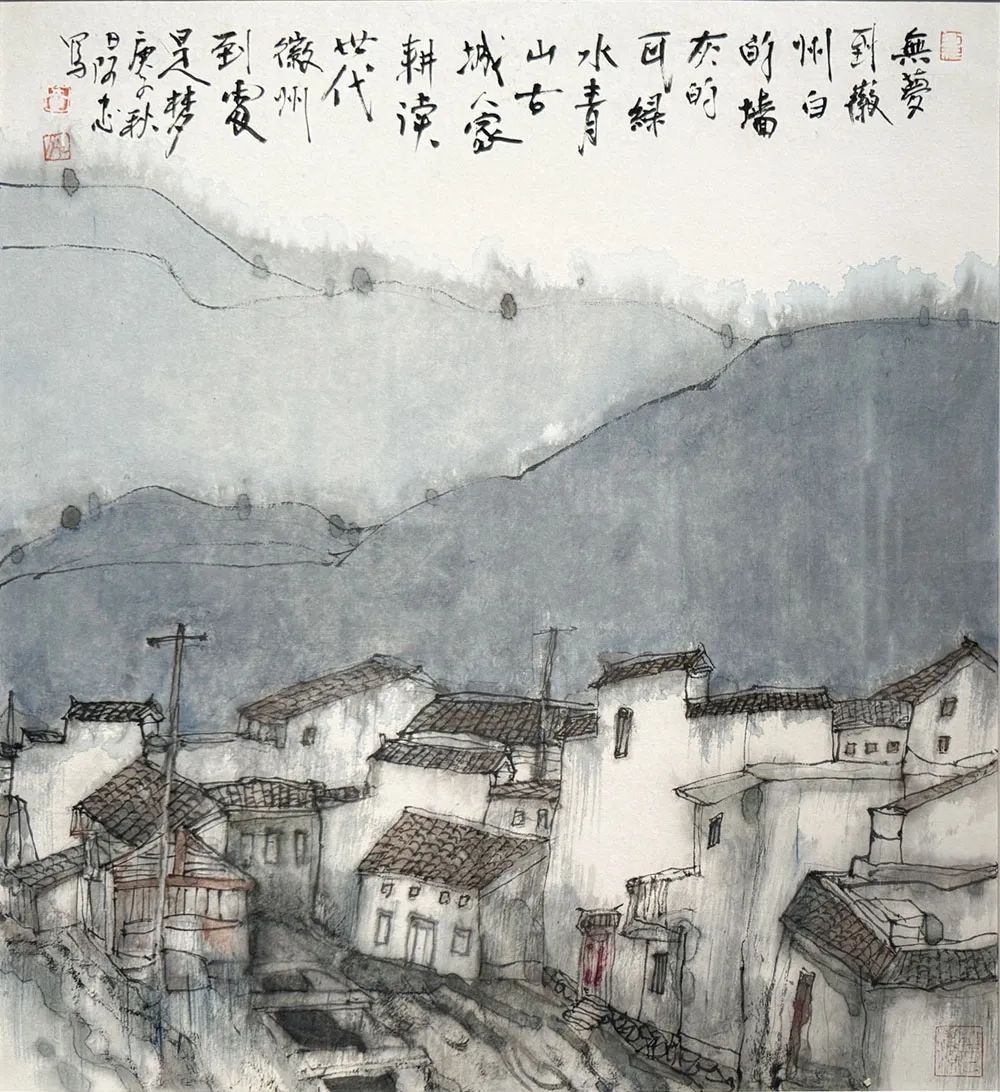 無夢
到徽
州白
的墙
灰的
瓦緑
水青
山古
城人家
耕读
世代
徽州
到處
是梦
庚子秋
日
写